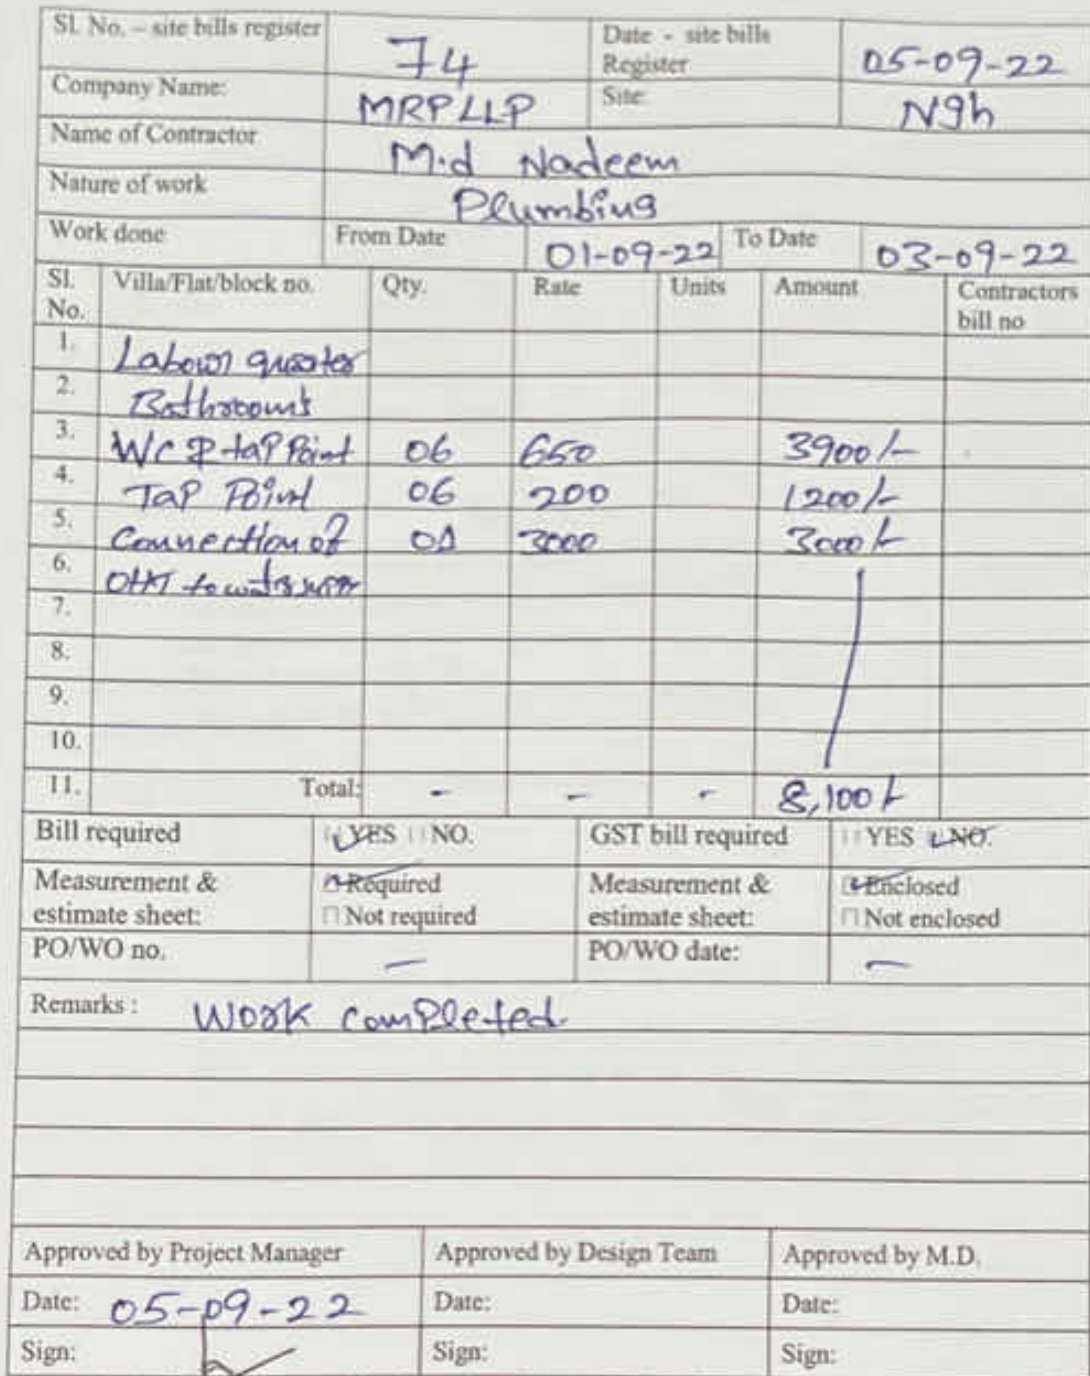 Sl. No. – site bills register 74 Date - site bills Register 05-09-22
Company Name: MRPLLP Site: Ngh
Name of Contractor M.d Nadeem
Nature of work Plumbing
Work done From Date 01-09-22 To Date 03-09-22
Sl. No. Villa/Flat/block no. Qty. Rate Units Amount Contractors bill no
1. Labour
2. Bathrooms
3. WC & taP Point 06 650 3900/-
4. TaP Point 06 200 1200/-
5. Connection of 01 3000 3000/-
6. OHT to
7.
8.
9.
10.
11. Total: - - - 8,100/-
Bill required YES NO. GST bill required YES NO.
Measurement & estimate sheet: Required Measurement & estimate sheet: Enclosed
Not required Not enclosed
PO/WO no. - PO/WO date: -
Remarks : Work completed
Approved by Project Manager Approved by Design Team Approved by M.D.
Date: 05-09-22 Date: Date:
Sign: Sign: Sign: